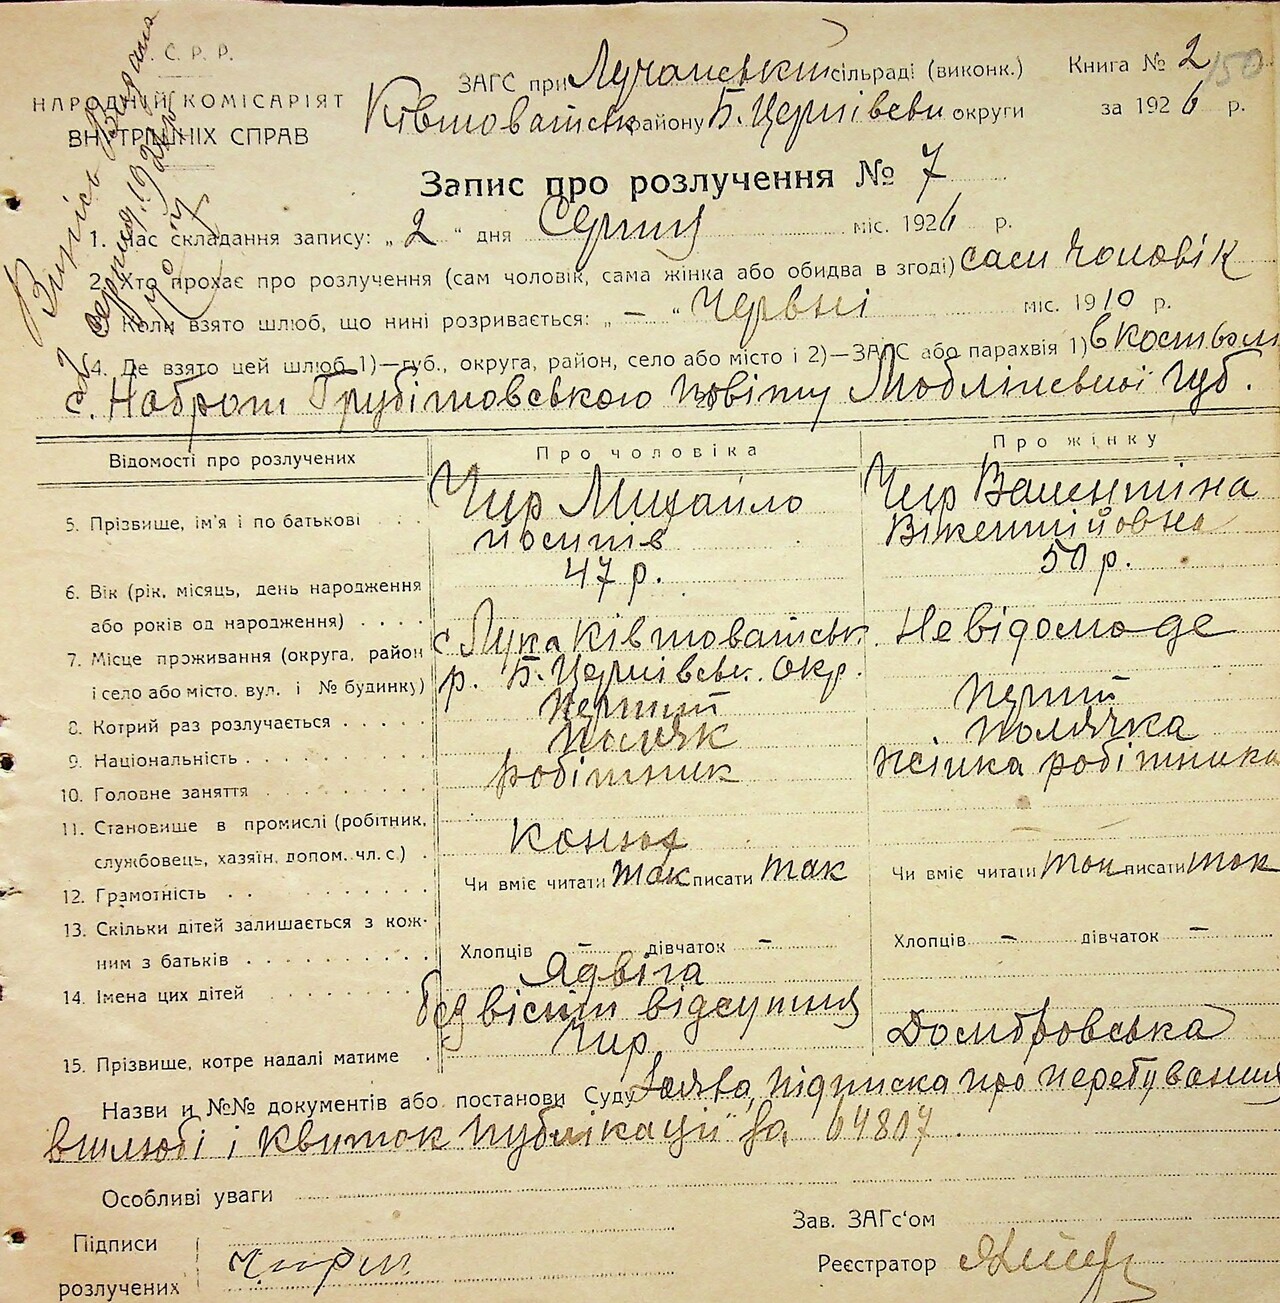 С. Р. Р.
НАРОДНІЙ КОМІСАРІЯТ
ВНУТРІШНІХ СПРАВ
Випись Видана
2 серпня 1926
ЗАГС при Лучанській сільраді (виконк.)
Книга № 2
150
Ківшоватськ району Б. Церківськ округи
за 1926 р.
Запис про розлучення № 7
1. Час складання запису: „ 2 " дня Серпня міс. 1926 р.
2. Хто прохає про розлучення (сам чоловік, сама жінка або обидва в згоді) сам чоловік
Коли взято шлюб, що нині розривається: „ – " Червні міс. 1910 р.
4. Де взято цей шлюб 1)—губ., округа, район, село або місто і 2)—ЗАГС або парахвія 1) в костьолі
с. Наброт Грубішовського повіту Люблінської губ.
Відомості про розлучених
Про чоловіка
Про жінку
5. Прізвище, ім'я і по батькові
Чир Михайло
Йосипів
Чир Валентіна
Вікентійовна
6. Вік (рік, місяць, день народження
або років од народження)
47 р.
50 р.
7. Місце проживання (округа, район
і село або місто, вул. і № будинку)
с Лука Ківшоватськ.
р. Б. Церківськ. окр.
Невідомо де
8. Котрий раз розлучається
Перший
Перший
9. Національність
Поляк
Полячка
10. Головне заняття
робітник
Жінка робітника
11. Становище в промислі (робітник,
службовець, хазяїн, допом. чл. с.)
Конюх
12. Грамотність
Чи вміє читати так писати так
Чи вміє читати так писати так
13. Скільки дітей залишається з кож-
ним з батьків
Хлопців – дівчаток –
Хлопців – дівчаток –
14. Імена цих дітей
Ядвіга
безвісти відсутня
15. Прізвище, котре надалі матиме
Чир
Домбровська
Назви и №№ документів або постанови Суду Заява, підписка про перебування
в шлюбі і квиток публікації за 64807.
Особливі уваги
Підписи
розлучених
Зав. ЗАГс'ом
Реєстратор